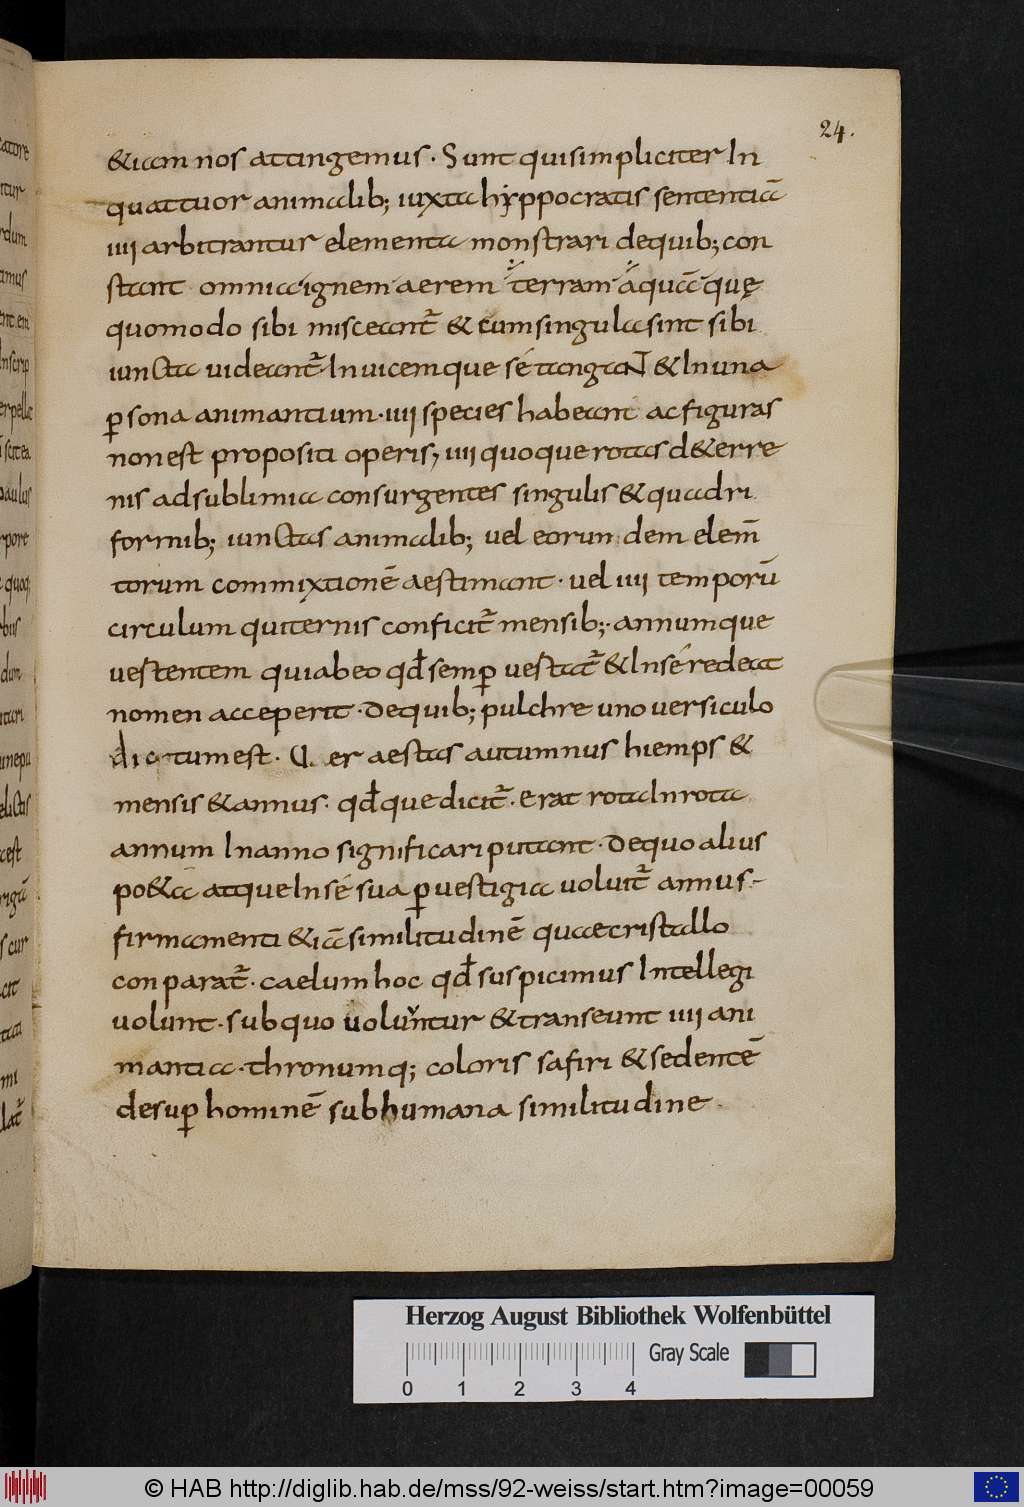 24.
&iam nos attingemus. Sunt quisimpliciter In
quattuor animalib; iuxta hyppocratis sententiā
iiii arbitrantur elementa monstrari dequib; con
stant omnia ignem aerem terram aquā quę
quomodo sibi misceant᷑ & cum singula sint sibi
iuncta uideant᷑ Inuicemque sé tangiaNT & In una
ꝑsona animantium. iiii species habeant ac figuras
non est propositi operis, iiii quoque rotas d&erre
nis ad sublimia consurgentes singulis & quadri
formib; iunctas animalib; uel eorun dem elem̄
torum commixtionē aestimant. uel iiii temporū
circulum quiternis conficit᷑ mensib;. annumque
uestentem quiabeo qđ semꝑ uestat᷑ & Insé redeat
nomen acceperit. dequib; pulchre uno uersiculo
dictum est. U er aestas autumnus hiemps &
mensis & annus. qđque dicit᷑. erat rota In rota
annum In anno significari putant. dequo alius
po&a atque Insé sua ꝑuestigia uoluit᷑ annus.
firmamenti & iā similitudinē quae cristallo
conparat᷑. caelum hoc qđ suspicimus Intellegi
uolunt. sub quo uoluntur & transeunt iiii ani
mantia. thronumq; coloris safiri & sedentē
desuꝑ hominē sub humana similitudine.
Herzog August Bibliothek Wolfenbüttel
Gray Scale
0 1 2 3 4
© HAB http://diglib.hab.de/mss/92-weiss/start.htm?image=00059